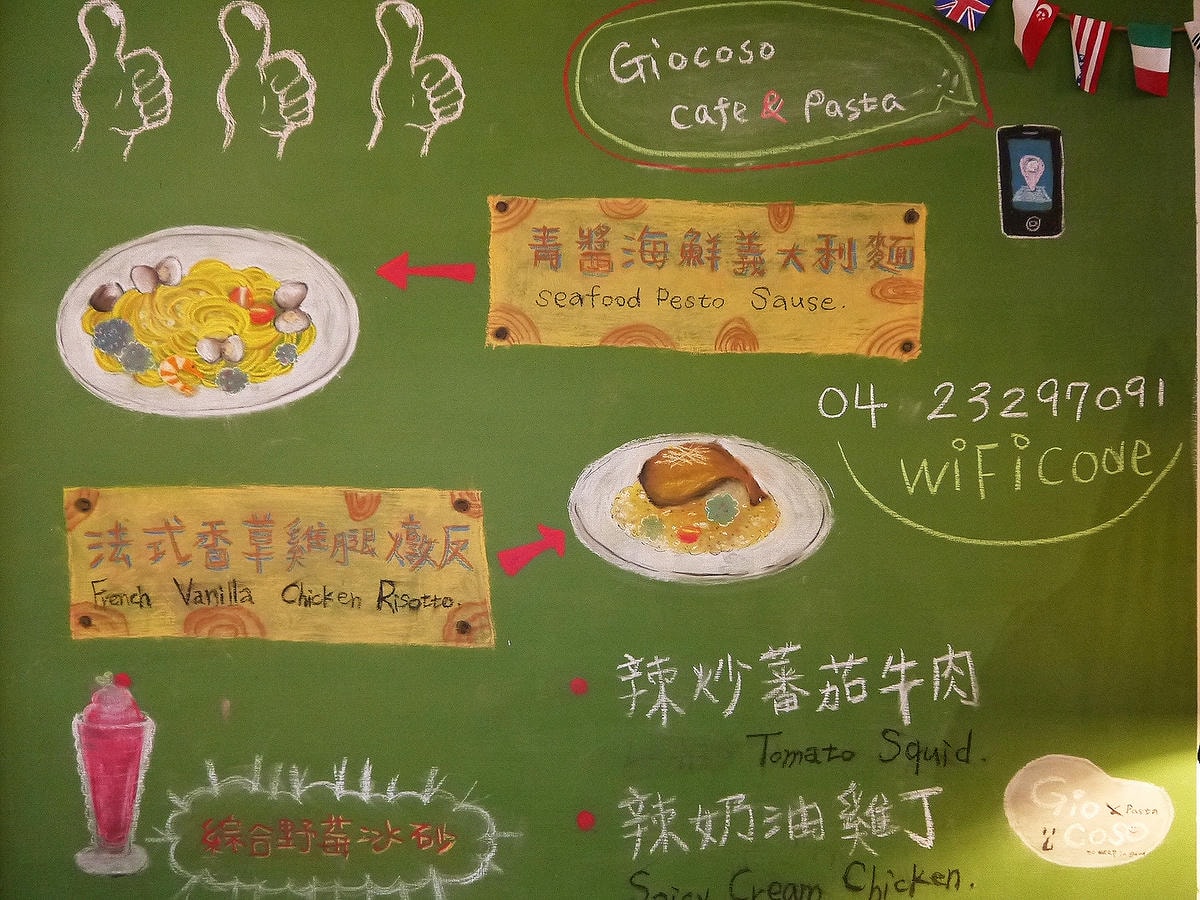 Giocoso
cafe & Pasta
青醬海鮮義大利麵
seafood Pesto Sause.
04 23297091
WiFicode
法式香草雞腿燉反
French Vanilla Chicken Risotto.
辣炒蕃茄牛肉
Tomato Squid.
辣奶油雞丁
Spicy Cream Chicken.
綜合野莓冰砂
Gio x Pasta
Coso